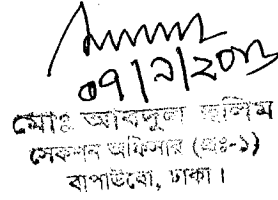 ০৭/২/২০১৬
মোঃ আবদুল হালিম
সেকশন অফিসার (প্রঃ-১)
বাপাউবো, ঢাকা।